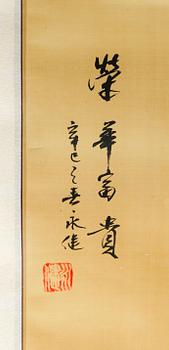 榮華富貴
辛巳之春永健